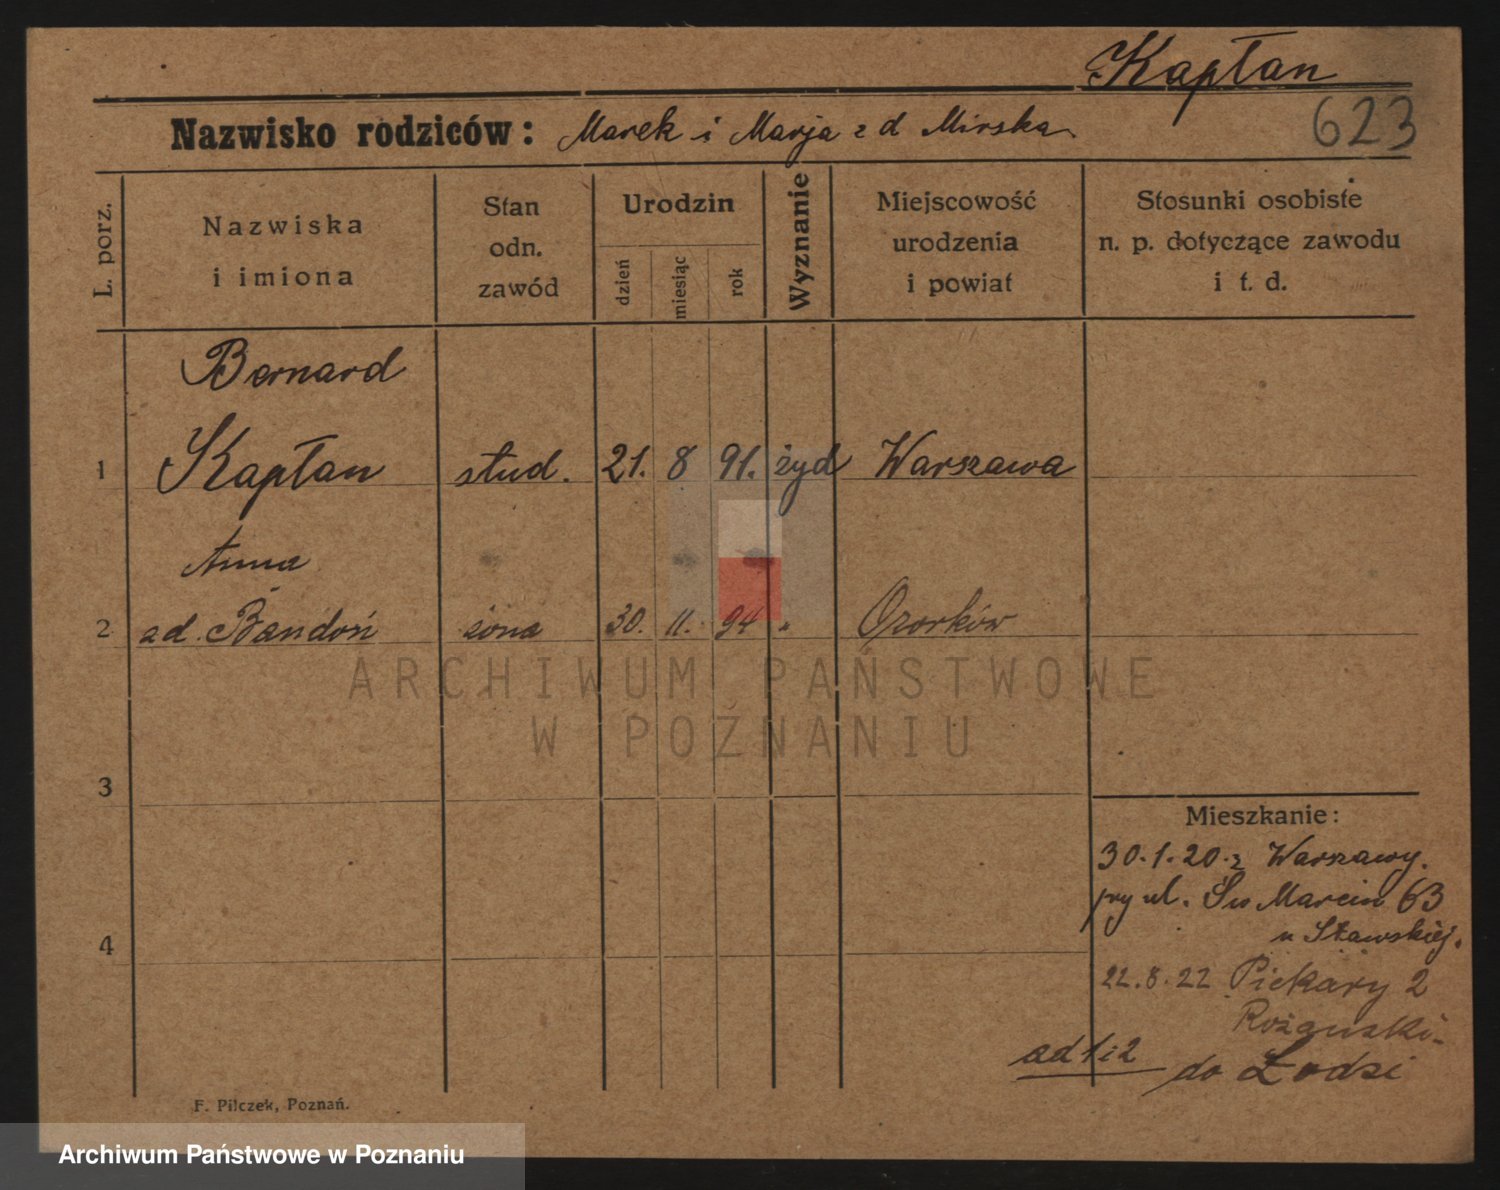 Kapłan
623
Nazwisko rodziców: Marek i Marja z d Mirska
L. porz.
Nazwiska
i imiona
Stan
odn.
zawód
Urodzin
dzień
miesiąc
rok
Wyznanie
Miejscowość
urodzenia
i powiat
Stosunki osobiste
n. p. dotyczące zawodu
i t. d.
Bernard
1 Kapłan stud. 21. 8 91. żyd Warszawa
Anna
2 zd. Bandoń żona 30. 11. 94 " Ozorków
ARCHIWUM PAŃSTWOWE
W POZNANIU
3
Mieszkanie:
30.1.20. z Warszawy.
przy ul. Św Marcin 63
u Sławskiej.
4
22.8.22 Piekary 2
ad 1 i 2 do Łodzi
F. Pilczek, Poznań.
Archiwum Państwowe w Poznaniu